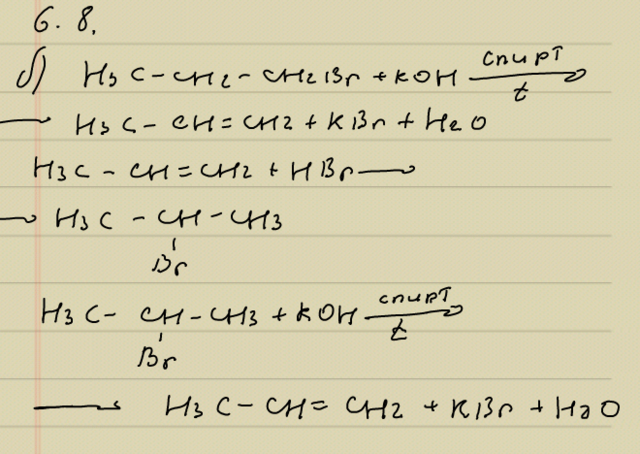 6. 8.
б) H3C-CH2-CH2Br + KOH спирт
t
→ H3C-CH=CH2 + KBr + H2O
H3C-CH=CH2 + HBr →
→ H3C-CH-CH3
Br
H3C-CH-CH3 + KOH спирт
t
Br
→ H3C-CH=CH2 + KBr + H2O